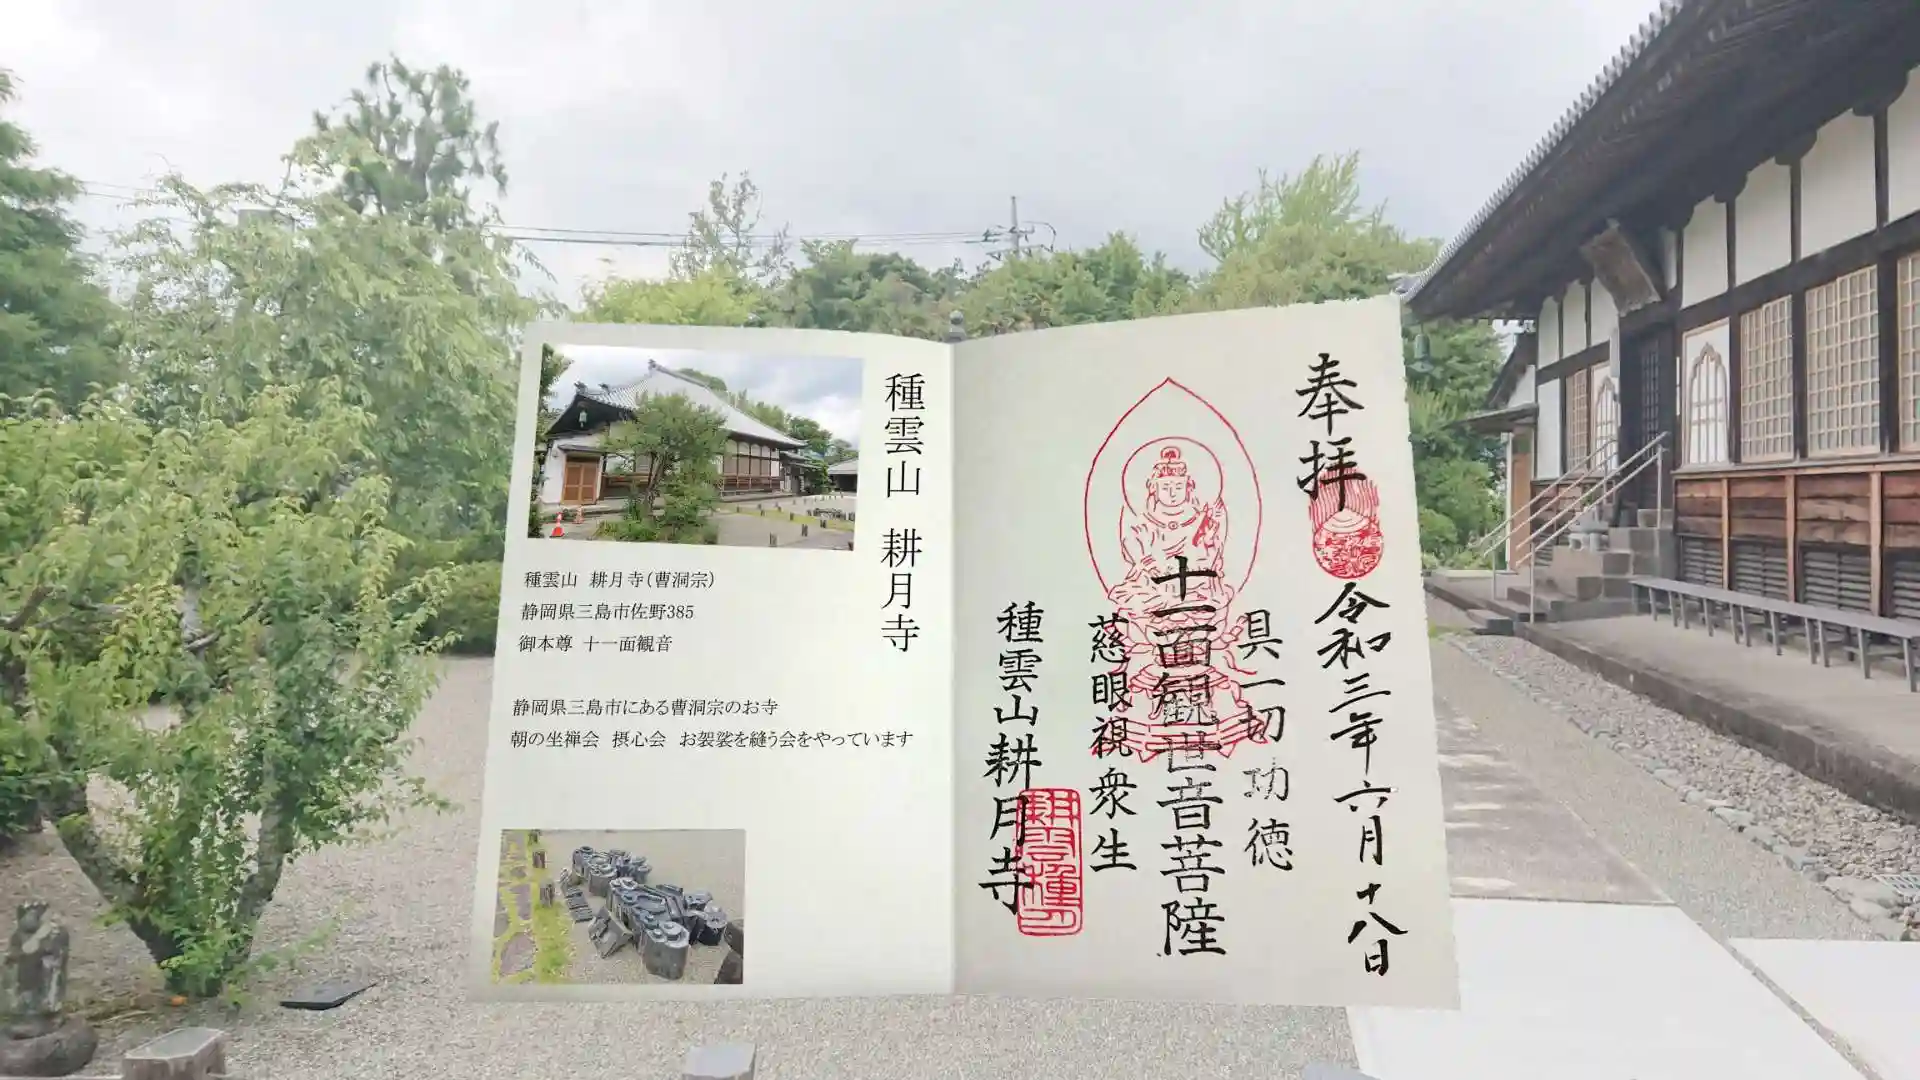 種雲山 耕月寺
種雲山 耕月寺(曹洞宗)
静岡県三島市佐野385
御本尊 十一面観音
静岡県三島市にある曹洞宗のお寺
朝の坐禅会 摂心会 お袈裟を縫う会をやっています
奉拝
令和三年六月十八日
具一切功徳
十一面観世音菩薩
慈眼視衆生
種雲山耕月寺